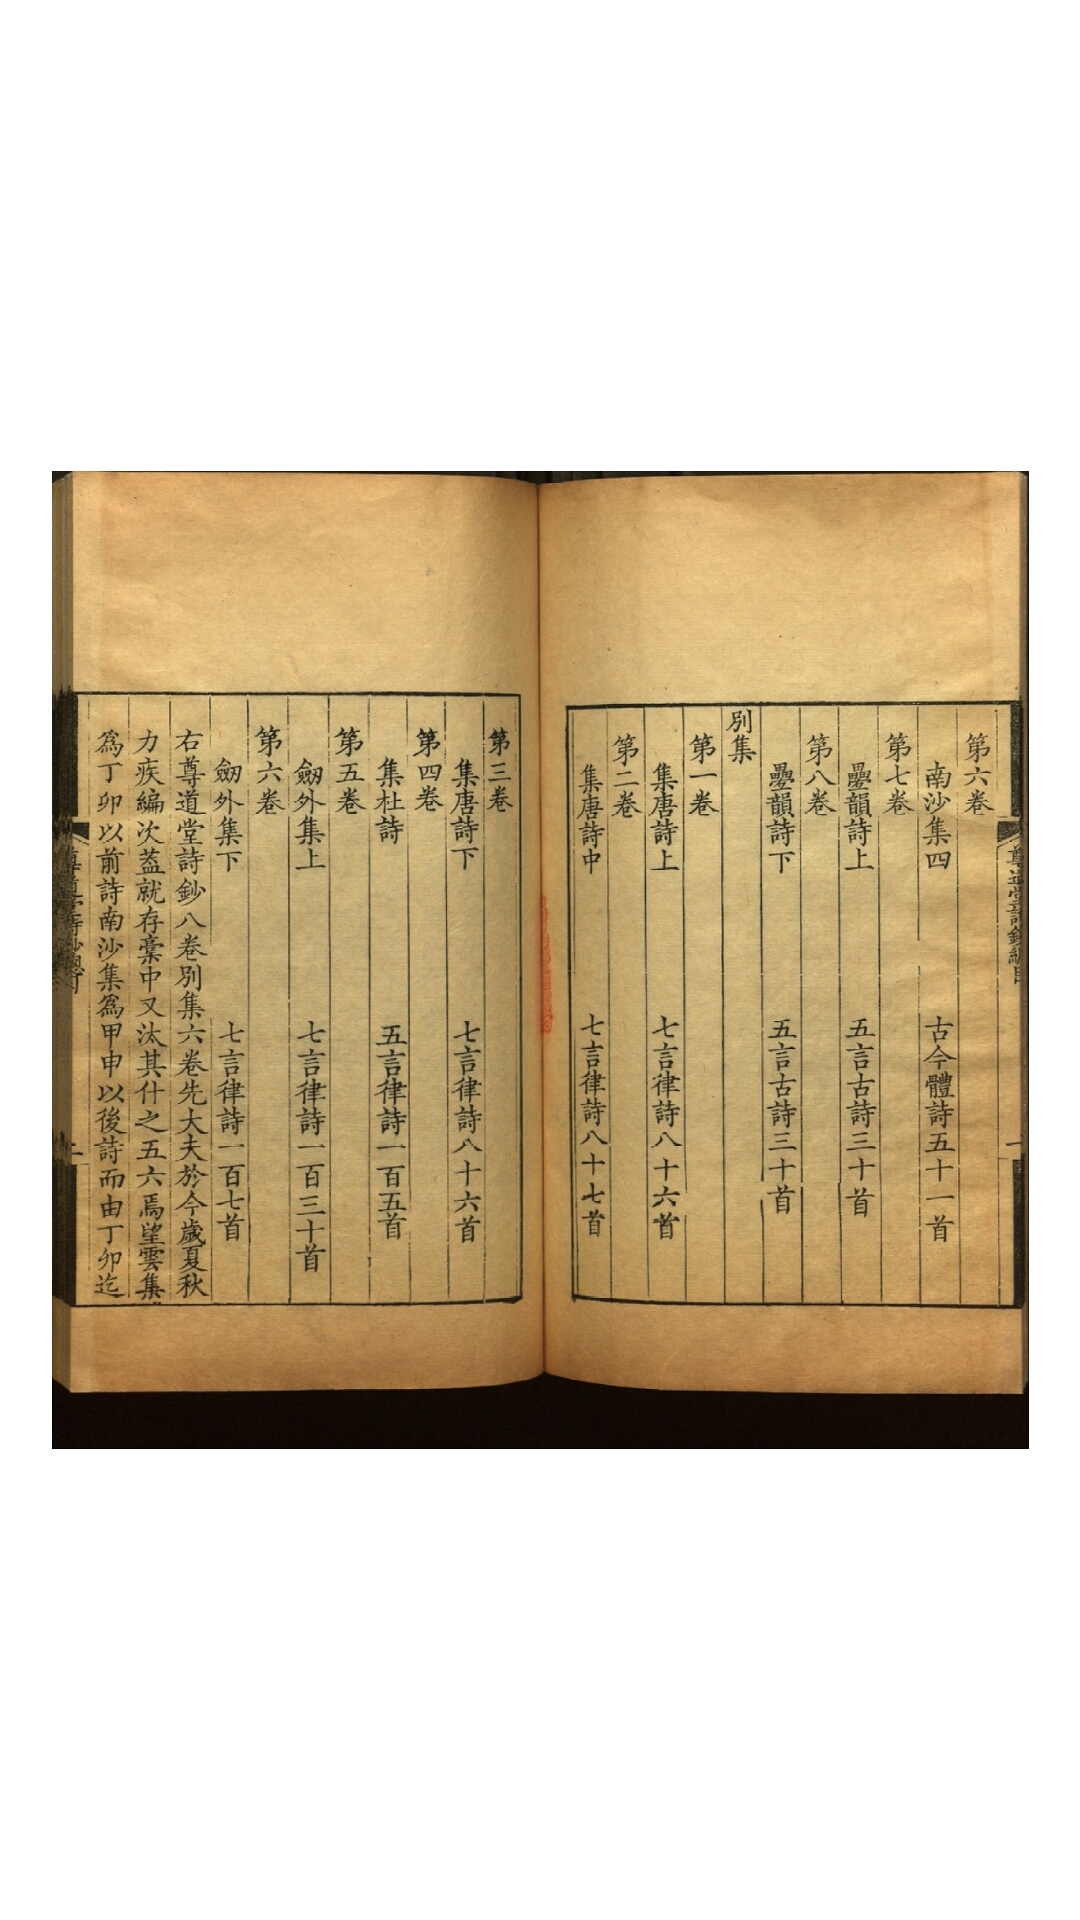 第六卷
南沙集四 古今體詩五十一首
第七卷
疊韻詩上 五言古詩三十首
第八卷
疊韻詩下 五言古詩三十首
別集
第一卷
集唐詩上 七言律詩八十六首
第二卷
集唐詩中 七言律詩八十七首
第三卷
集唐詩下 七言律詩八十六首
第四卷
集杜詩 五言律詩一百五首
第五卷
劒外集上 七言律詩一百三十首
第六卷
劒外集下 七言律詩一百七首
右尊道堂詩鈔八卷別集六卷先大夫於今歲夏秋
力疾編次葢就存稾中又汰其什之五六焉望雲集
爲丁卯以前詩南沙集爲甲申以後詩而由丁卯迄